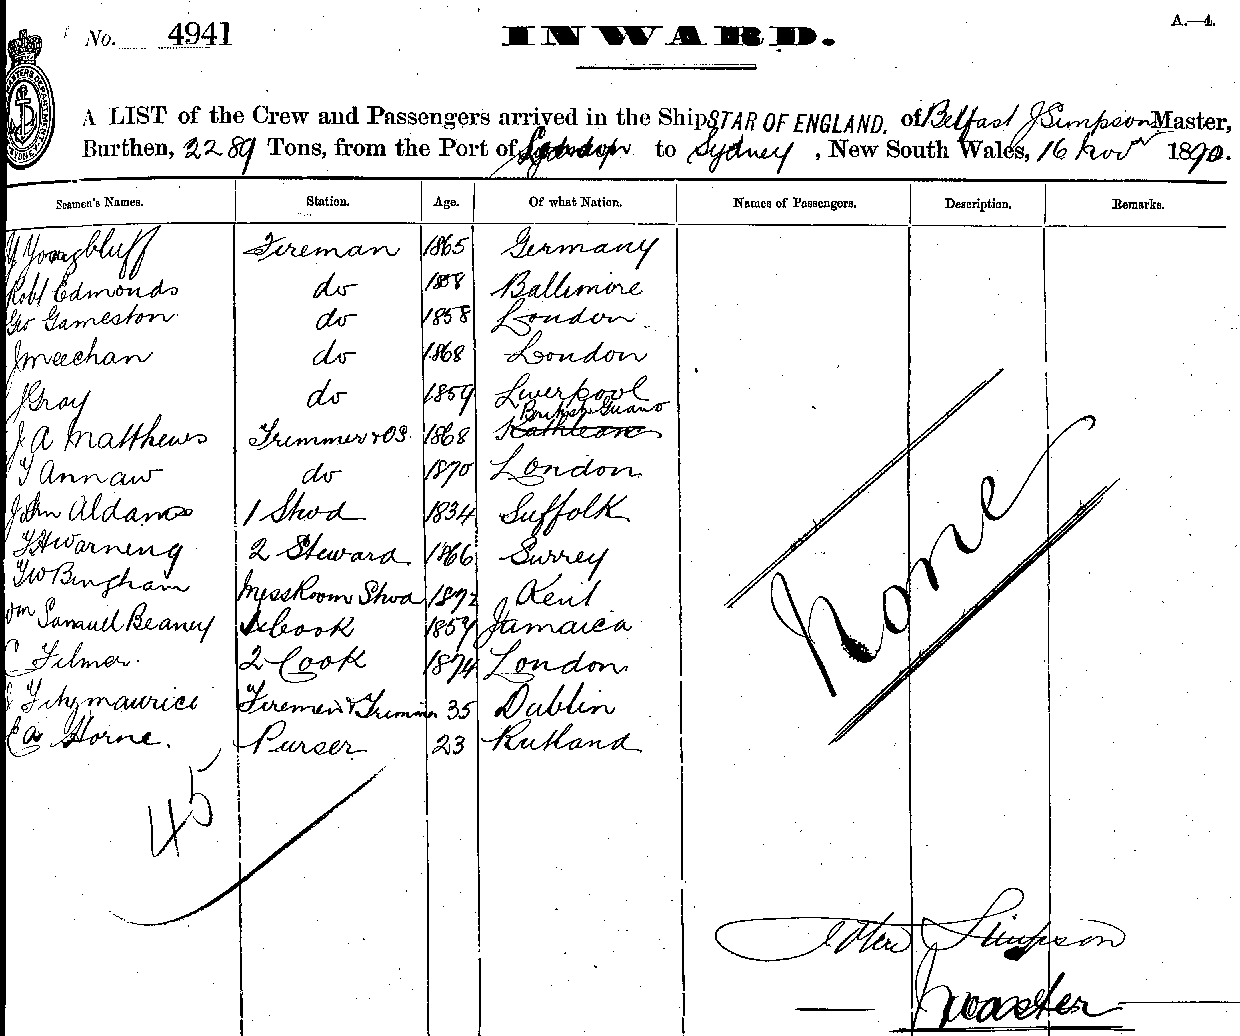 No. 4941 INWARD. A.—4.
A LIST of the Crew and Passengers arrived in the Ship STAR OF ENGLAND. of Belfast J Simpson Master,
Burthen, 2289 Tons, from the Port of London to Sydney, New South Wales, 16 Novr 1890.
Seamen's Names. Station. Age. Of what Nation. Names of Passengers. Description. Remarks.
Y Youngbluff Fireman 1865 Germany
Robt Edmonds do 1858 Baltimore
Geo Gameston do 1858 London
J Meechan do 1868 London
J Gray do 1859 Liverpool
British Guano
J. A Matthews Trimmer & OS. 1868
T Annaw do 1870 London
John Aldams 1 Stwd 1834 Suffolk
T H Warneng 2 Steward 1866 Surrey
T W Bingham Mess Room Stwd 1872 Kent
Wm Samuel Beaney 1 Cook 1859 Jamaica
C Filmer. 2 Cook 1874 London
Fitzmaurice Firemen & Trimmer 35 Dublin
E A Horne. Purser 23 Rutland
None
45
John Simpson
Master